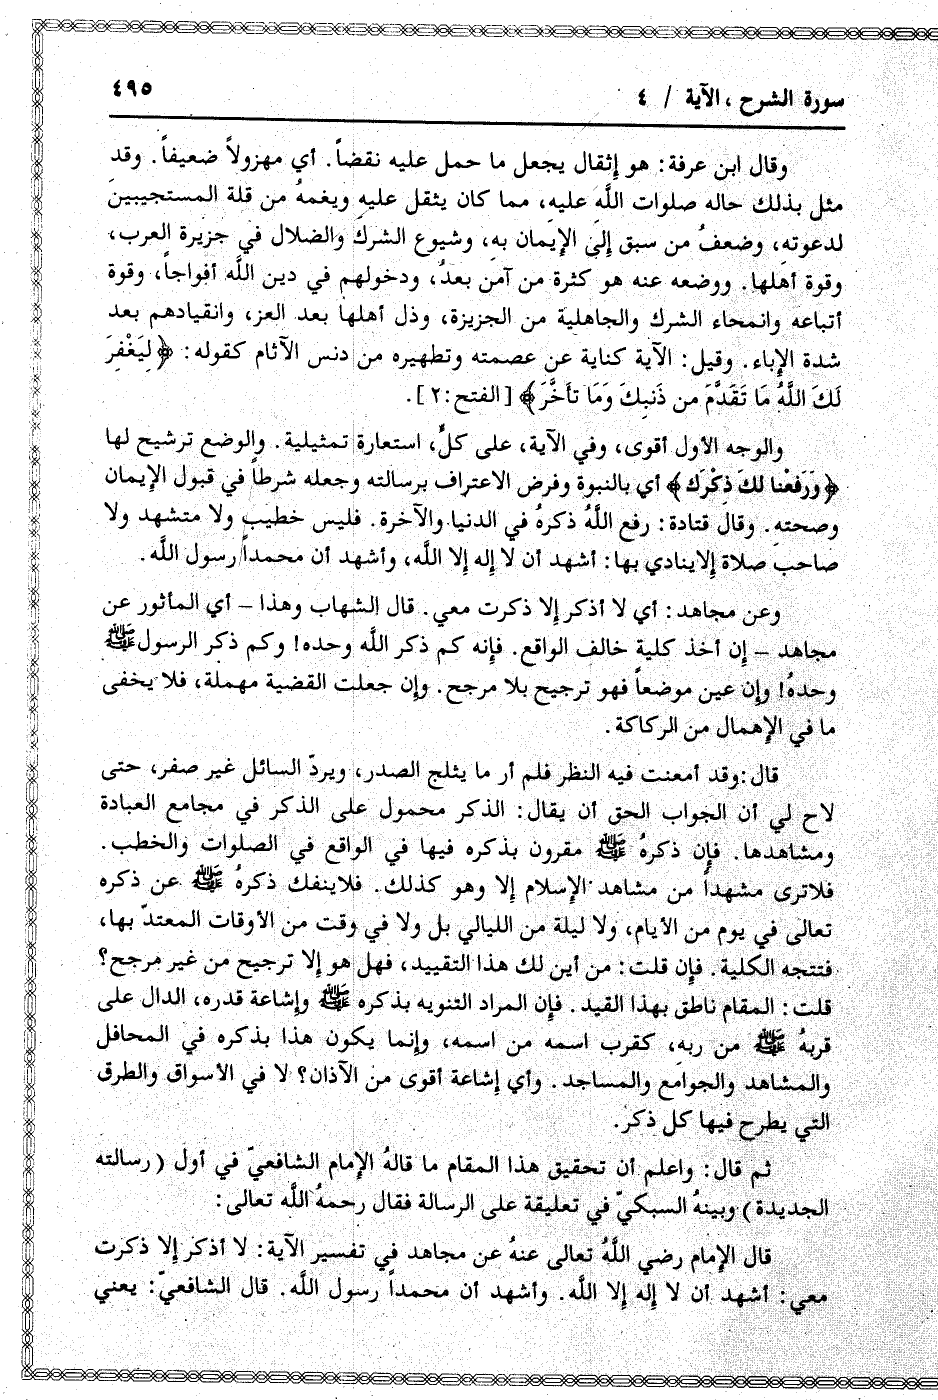 سورة الشرح ، الآية / ٤
٤٩٥
وقال ابن عرفة: هو إثقال يجعل ما حمل عليه نقضاً. أي مهزولاً ضعيفاً. وقد
مثل بذلك حاله صلوات اللَّه عليه، مما كان يثقل عليه ويغمهُ من قلة المستجيبين
لدعوته، وضعفُ من سبق إلى الإيمان به، وشيوع الشرك والضلال في جزيرة العرب،
وقوة أهلها. ووضعه عنه هو كثرة من آمن بعدُ، ودخولهم في دين اللَّه أفواجاً، وقوة
أتباعه وانمحاء الشرك والجاهلية من الجزيزة، وذل أهلها بعد العز، وانقيادهم بعد
شدة الإباء. وقيل: الآية كناية عن عصمته وتطهيره من دنس الآثام كقوله: ﴿لِيَغْفِرَ
لَكَ اللَّهُ مَا تَقَدَّمَ من ذَنبِكَ وَمَا تَأَخَّرَ﴾ [الفتح:٢].
والوجه الأول أقوى، وفي الآية، على كلٍّ، استعارة تمثيلية. والوضع ترشيح لها
﴿وَرَفَعْنا لكَ ذِكْرَك﴾ أي بالنبوة وفرض الاعتراف برسالته وجعله شرطاً في قبول الإيمان
وصحته. وقال قتادة: رفع اللَّهُ ذكرهُ في الدنيا والآخرة. فليس خطيب ولا متشهد ولا
صاحب صلاة إلاينادي بها: أشهد أن لا إله إلا اللَّه، وأشهد أن محمداً رسول اللَّه.
وعن مجاهد: أي لا أذكر إلا ذكرت معي. قال الشهاب وهذا – أي المأثور عن
مجاهد – إن أخذ كلية خالف الواقع. فإنه كم ذكر اللَّه وحده! وكم ذكر الرسول ﷺ
وحدهُ! وإن عين موضعاً فهو ترجيح بلا مرجح. وإن جعلت القضية مهملة، فلا يخفى
ما في الإهمال من الركاكة.
قال:وقد أمعنت فيه النظر فلم أر ما يثلج الصدر، ويردّ السائل غير صفر، حتى
لاح لي أن الجواب الحق أن يقال: الذكر محمول على الذكر في مجامع العبادة
ومشاهدها. فإن ذكرهُ ﷺ مقرون بذكره فيها في الواقع في الصلوات والخطب.
فلاترى مشهداً من مشاهد الإسلام إلا وهو كذلك. فلاينفك ذكرهُ ﷺ عن ذكره
تعالى في يوم من الأيام، ولا ليلة من الليالي بل ولا في وقت من الأوقات المعتدّ بها،
فتتجه الكلية. فإن قلت: من أين لك هذا التقييد، فهل هو إلا ترجيح من غير مرجح؟
قلت: المقام ناطق بهذا القيد. فإن المراد التنويه بذكره ﷺ وإشاعة قدره، الدال على
قربهُ ﷺ من ربه، كقرب اسمه من اسمه، وإنما يكون هذا بذكره في المحافل
والمشاهد والجوامع والمساجد. وأي إشاعة أقوى من الآذان؟ لا في الأسواق والطرق
التي يطرح فيها كل ذكر.
ثم قال: واعلم أن تحقيق هذا المقام ما قالهُ الإمام الشافعيّ في أول (رسالته
الجديدة) وبينهُ السبكيّ في تعليقة على الرسالة فقال رحمهُ اللَّه تعالى:
قال الإمام رضي اللَّهُ تعالى عنهُ عن مجاهد في تفسير الآية: لا أذكر إلا ذكرت
معي: أشهد أن لا إله إلا اللَّه. وأشهد أن محمداً رسول اللَّه. قال الشافعيّ: يعني